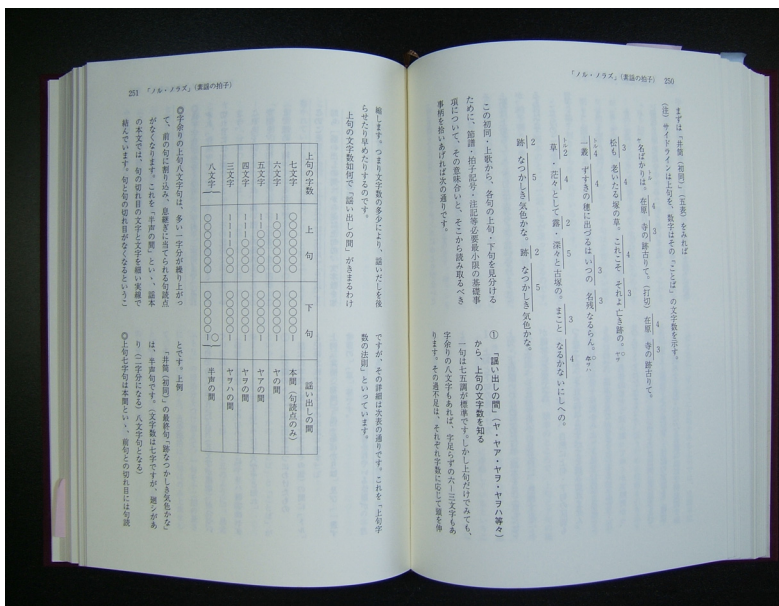 「ノル・ノラズ」(素謡の拍子) 250
まずは「井筒(初同)」(五表)をみれば
(注) サイドラインは上句を、数字はその「ことば」の文字数を示す。
名ばかりは。在原 寺の跡古りて。(打切) 在原 寺の跡古りて。
松も 老いたる塚の草。これこそ それよ 亡き跡の。
一叢 ずすきの穂に出づるはいつの 名残なるらん。
草・茫々として 露・深々と 古塚の。まこと なるかな いにしへの。
跡 なつかしき 気色かな。跡 なつかしき 気色かな。
この初同・上歌から、各句の上句・下句を見分ける
ために、節譜・拍子記号・注記等必要最小限の基礎事
項について、その意味合いと、そこから読み取るべき
事柄を拾いあげれば次の通りです。
① 「謡い出しの間」(ヤ・ヤア・ヤヲ・ヤヲハ等々)
から、上句の文字数を知る
一句は七五調が標準です。しかし上句だけでみても、
字余りの八文字もあれば、字足らずの六~三文字もあ
ります。その過不足は、それぞれ字数に応じて頭を伸
251 「ノル・ノラズ」(素謡の拍子)
縮します。つまり文字数の多少により、謡いだしを後
らせたり早めたりするのです。
上句の文字数如何で「謡い出しの間」がきまるわけ
ですが、その詳細は次表の通りです。これを「上句字
数の法則」といっています。
上句の字数 上句 下句 謡い出しの間
七文字 本間(句読点のみ)
六文字 ヤの間
五文字 ヤアの間
四文字 ヤヲの間
三文字 ヤヲハの間
八文字 半声の間
◎字余りの上句八文字句は、多い一字分が繰り上がっ
て、前の句に割り込み、息継ぎに当てられる句読点
がなくなります。これを「半声の間」といゝ、謡本
の本文では、句の切れ目の文字と文字を細い実線で
結んでいます。句と句の切れ目がなくなるというこ
とです。上例
「井筒(初同)」の最終句「跡なつかしき気色かな」
は、半声句です。(文字数は七字ですが、廻シがあ
り(二字分になる)八文字句となる)
◎上句七字句は本間といゝ、前句との切れ目には句読